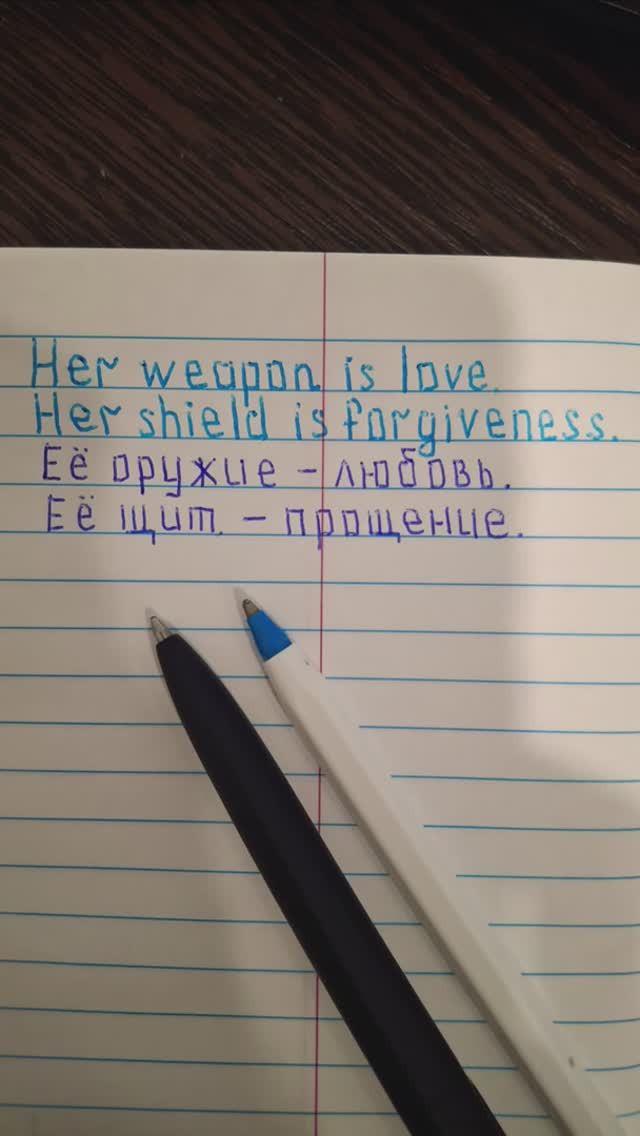 Her weapon is love.
Her shield is forgiveness.
Её оружие - любовь.
Её щит. - прощение.